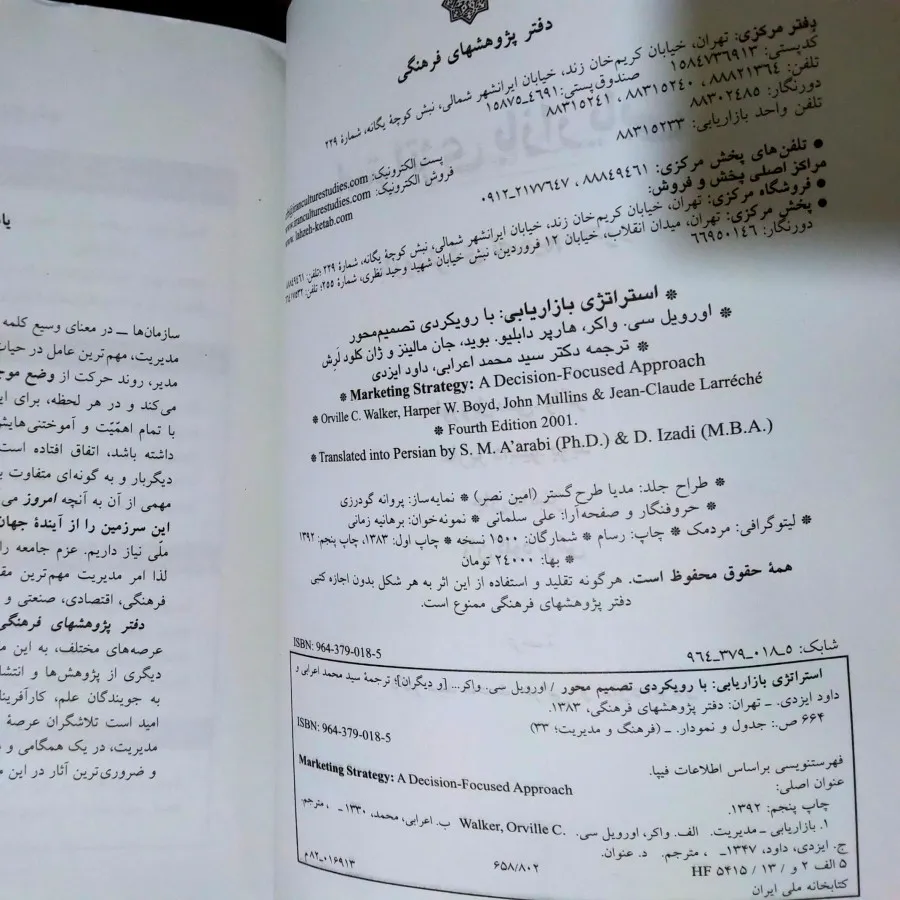 دفتر پژوهشهای فرهنگی
دفتر مرکزی: تهران، خیابان کریم‌خان زند، خیابان ایرانشهر شمالی، نبش کوچهٔ یگانه، شمارهٔ ۲۳۹
کدپستی: ۱۵۸۴۷۳۶۹۱۳ صندوق‌پستی: ۴۶۹۱ـ۱۵۸۷۵
تلفن: ۸۸۸۲۱۳۶۴ ، ۸۸۳۱۵۲۴۰ ، ۸۸۳۱۵۲۴۱
دورنگار: ۸۸۳۰۲۴۸۵
تلفن واحد بازاریابی: ۸۸۳۱۵۲۳۳
● تلفن‌های پخش مرکزی: ۸۸۸۴۹۴۶۱ ، ۲۱۷۷۶۴۷ـ۰۹۱۲
پست الکترونیک: @iranculturestudies.com
فروش الکترونیک: www.iranculturestudies.com
www.lahzeh-ketab.com
مراکز اصلی پخش و فروش:
● فروشگاه مرکزی: تهران، خیابان کریم‌خان زند، خیابان ایرانشهر شمالی، نبش کوچهٔ یگانه، شمارهٔ ۲۳۹؛ تلفن: ۸۸۸۴۹۴۶۱
● پخش مرکزی: تهران، میدان انقلاب، خیابان ۱۲ فروردین، نبش خیابان شهید وحید نظری، شمارهٔ ۲۵۵؛ تلفن:
دورنگار: ۶۶۹۵۰۱۴۶
❋ استراتژی بازاریابی: با رویکردی تصمیم‌محور
❋ اورویل سی. واکر، هارپر دابلیو. بوید، جان مالینز و ژان کلود لَرِش
❋ ترجمه دکتر سید محمد اعرابی، داود ایزدی
❋ Marketing Strategy: A Decision-Focused Approach
❋ Orville C. Walker, Harper W. Boyd, John Mullins & Jean-Claude Larréché
❋ Fourth Edition 2001.
❋ Translated into Persian by S. M. A'arabi (Ph.D.) & D. Izadi (M.B.A.)
❋ طراح جلد: مدیا طرح‌گستر (امین نصر) ❋ نمایه‌ساز: پروانه گودرزی
❋ حروفنگار و صفحه‌آرا: علی سلمانی ❋ نمونه‌خوان: برهانیه زمانی
❋ لیتوگرافی: مردمک ❋ چاپ: رسام ❋ شمارگان: ۱۵۰۰ نسخه ❋ چاپ اول: ۱۳۸۳، چاپ پنجم: ۱۳۹۲
❋ بها: ۲۴۰۰۰ تومان
همهٔ حقوق محفوظ است. هرگونه تقلید و استفاده از این اثر به هر شکل بدون اجازه کتبی
دفتر پژوهشهای فرهنگی ممنوع است.
شابک: ۵ـ۰۱۸ـ۳۷۹ـ۹۶۴ ISBN: 964-379-018-5
استراتژی بازاریابی: با رویکردی تصمیم محور / اورویل سی. واکر... [و دیگران]؛ ترجمهٔ سید محمد اعرابی و
داود ایزدی. ـ تهران: دفتر پژوهشهای فرهنگی، ۱۳۸۳.
۶۶۴ ص.: جدول و نمودار. ـ (فرهنگ و مدیریت؛ ۳۳)
ISBN: 964-379-018-5
فهرستنویسی براساس اطلاعات فیپا.
عنوان اصلی:
Marketing Strategy: A Decision-Focused Approach
چاپ پنجم: ۱۳۹۲.
۱. بازاریابی ـ مدیریت. الف. واکر، اورویل سی. Walker, Orville C. ب. اعرابی، محمد، ۱۳۳۰ـ ، مترجم.
ج. ایزدی، داود، ۱۳۴۷ـ ، مترجم. د. عنوان.
۵ الف ۲ و / ۱۳ / HF ۵۴۱۵ ۶۵۸/۸۰۲ ۰۱۶۹۱۳ـ۸۲م
کتابخانه ملی ایران
سازمان‌ها ــ در معنای وسیع کلمه
مدیریت، مهم‌ترین عامل در حیات
مدیر، روند حرکت از وضع موج
می‌کند و در هر لحظه، برای ای
با تمام اهمّیّت و آموختنی‌هایش
داشته باشد، اتفاق افتاده است
دیگربار و به گونه‌ای متفاوت
مهمی از آن به آنچه امروز می
این سرزمین را از آیندهٔ جهان
ملّی نیاز داریم. عزم جامعه را
لذا امر مدیریت مهم‌ترین مق
فرهنگی، اقتصادی، صنعتی و
دفتر پژوهشهای فرهنگی
عرصه‌های مختلف، به این م
دیگری از پژوهش‌ها و انتشا
به جویندگان علم، کارآفرینا
امید است تلاشگران عرصهٔ
مدیریت، در یک همگامی و
و ضروری‌ترین آثار در این م